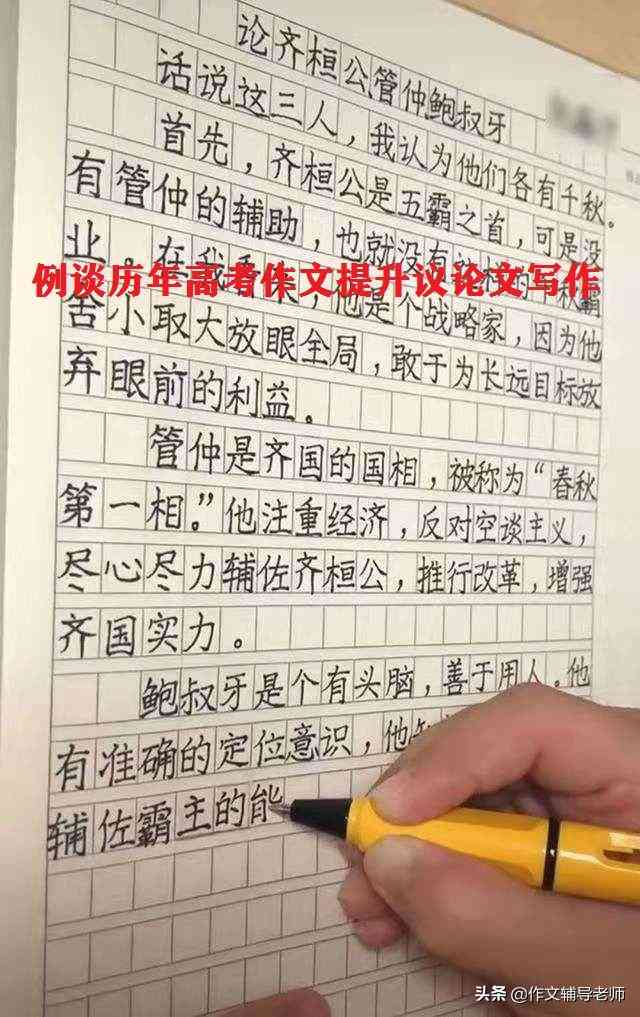 论齐桓公管仲鲍叔牙
话说这三人，我认为他们各有千秋。
首先，齐桓公是五霸之首，可是没
有管仲的辅助，也就没有
业。在我看来，他是个战略家，因为他
例谈历年高考作文提升议论文写作
舍小取大放眼全局，敢于为长远目标放
弃眼前的利益。
管仲是齐国的国相，被称为“春秋
第一相。”他注重经济，反对空谈主义，
尽心尽力辅佐齐桓公，推行改革，增强
齐国实力。
鲍叔牙是个有头脑，善于用人。他
有准确的定位意识，他知
辅佐霸主的能
头条@作文辅导老师